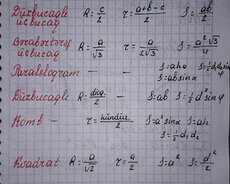 Düzbucaqlı üçbucaq R = c/2 r = a+b-c/2 S = ab/2
Bərabərtərəf üçbucaq R = a/√3 r = a/2√3 S = a²√3
Paraleloqram — — S = aha S = ½ d₁d₂ sinφ
S = ab sinα
Düzbucaqlı R = diaq./2 — S = ab S = ½ d² sinφ
Romb — r = hündür./2 S = a² sinα S = ah
S = ½ d₁ d₂
Kvadrat R = a/√2 r = a/2 S = a² S = d²/2